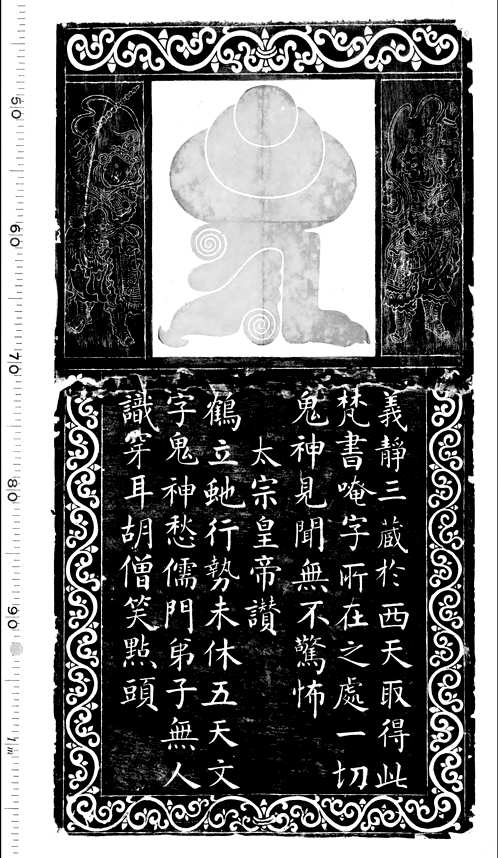 義靜三藏於西天取得此
梵書唵字所在之處一切
鬼神見聞無不驚怖
太宗皇帝讃
鶴立虵行勢未休五天文
字鬼神愁儒門弟子無人
識穿耳胡僧笑點頭
50
60
70
80
90
1m